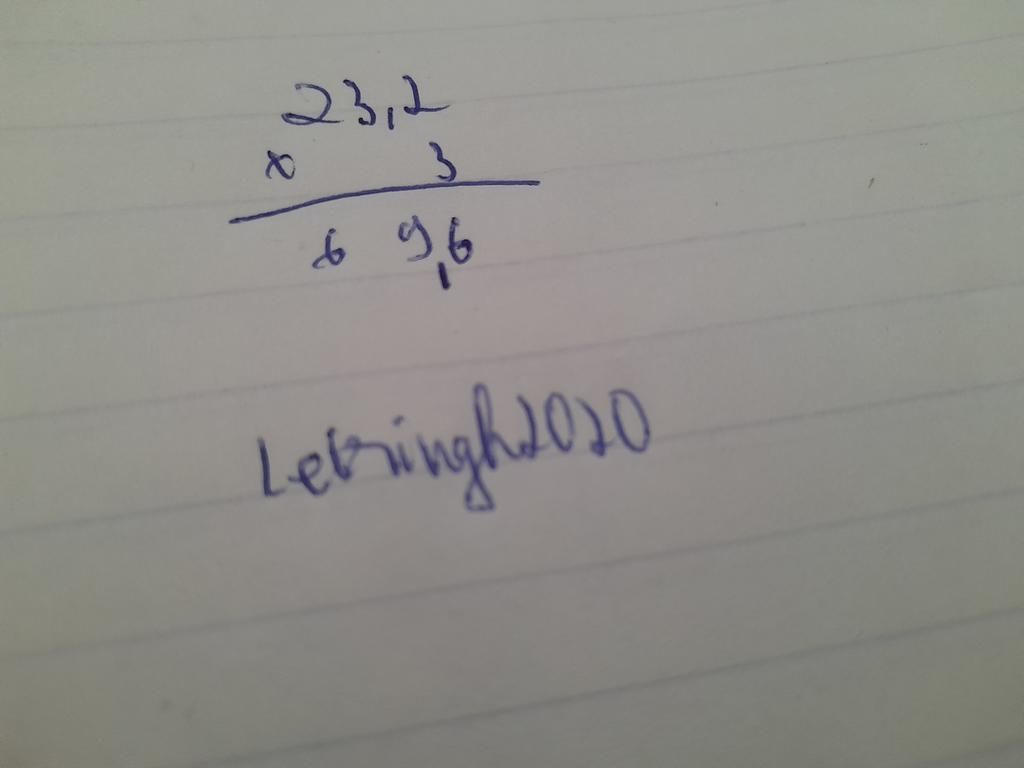 23,2
x 3
6 9,6
Letringh2020